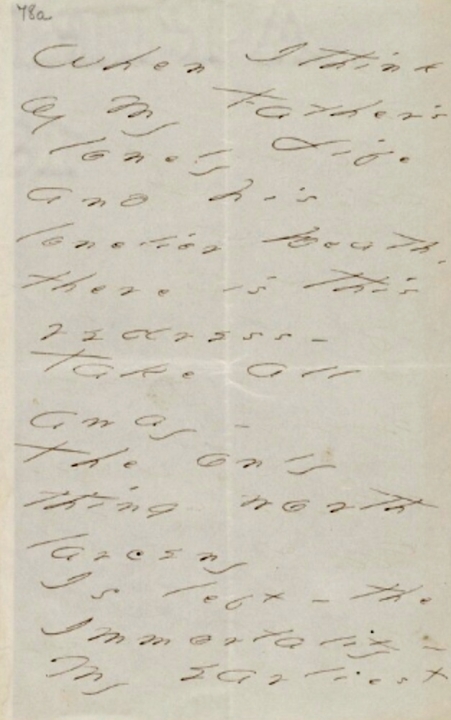 78a
When I think
of my Father's
lonely Life
and his
lonelier Death,
there is this
redress -
Take all
away -
The only
thing worth
larceny
Is left - the
Immortality -
My earliest